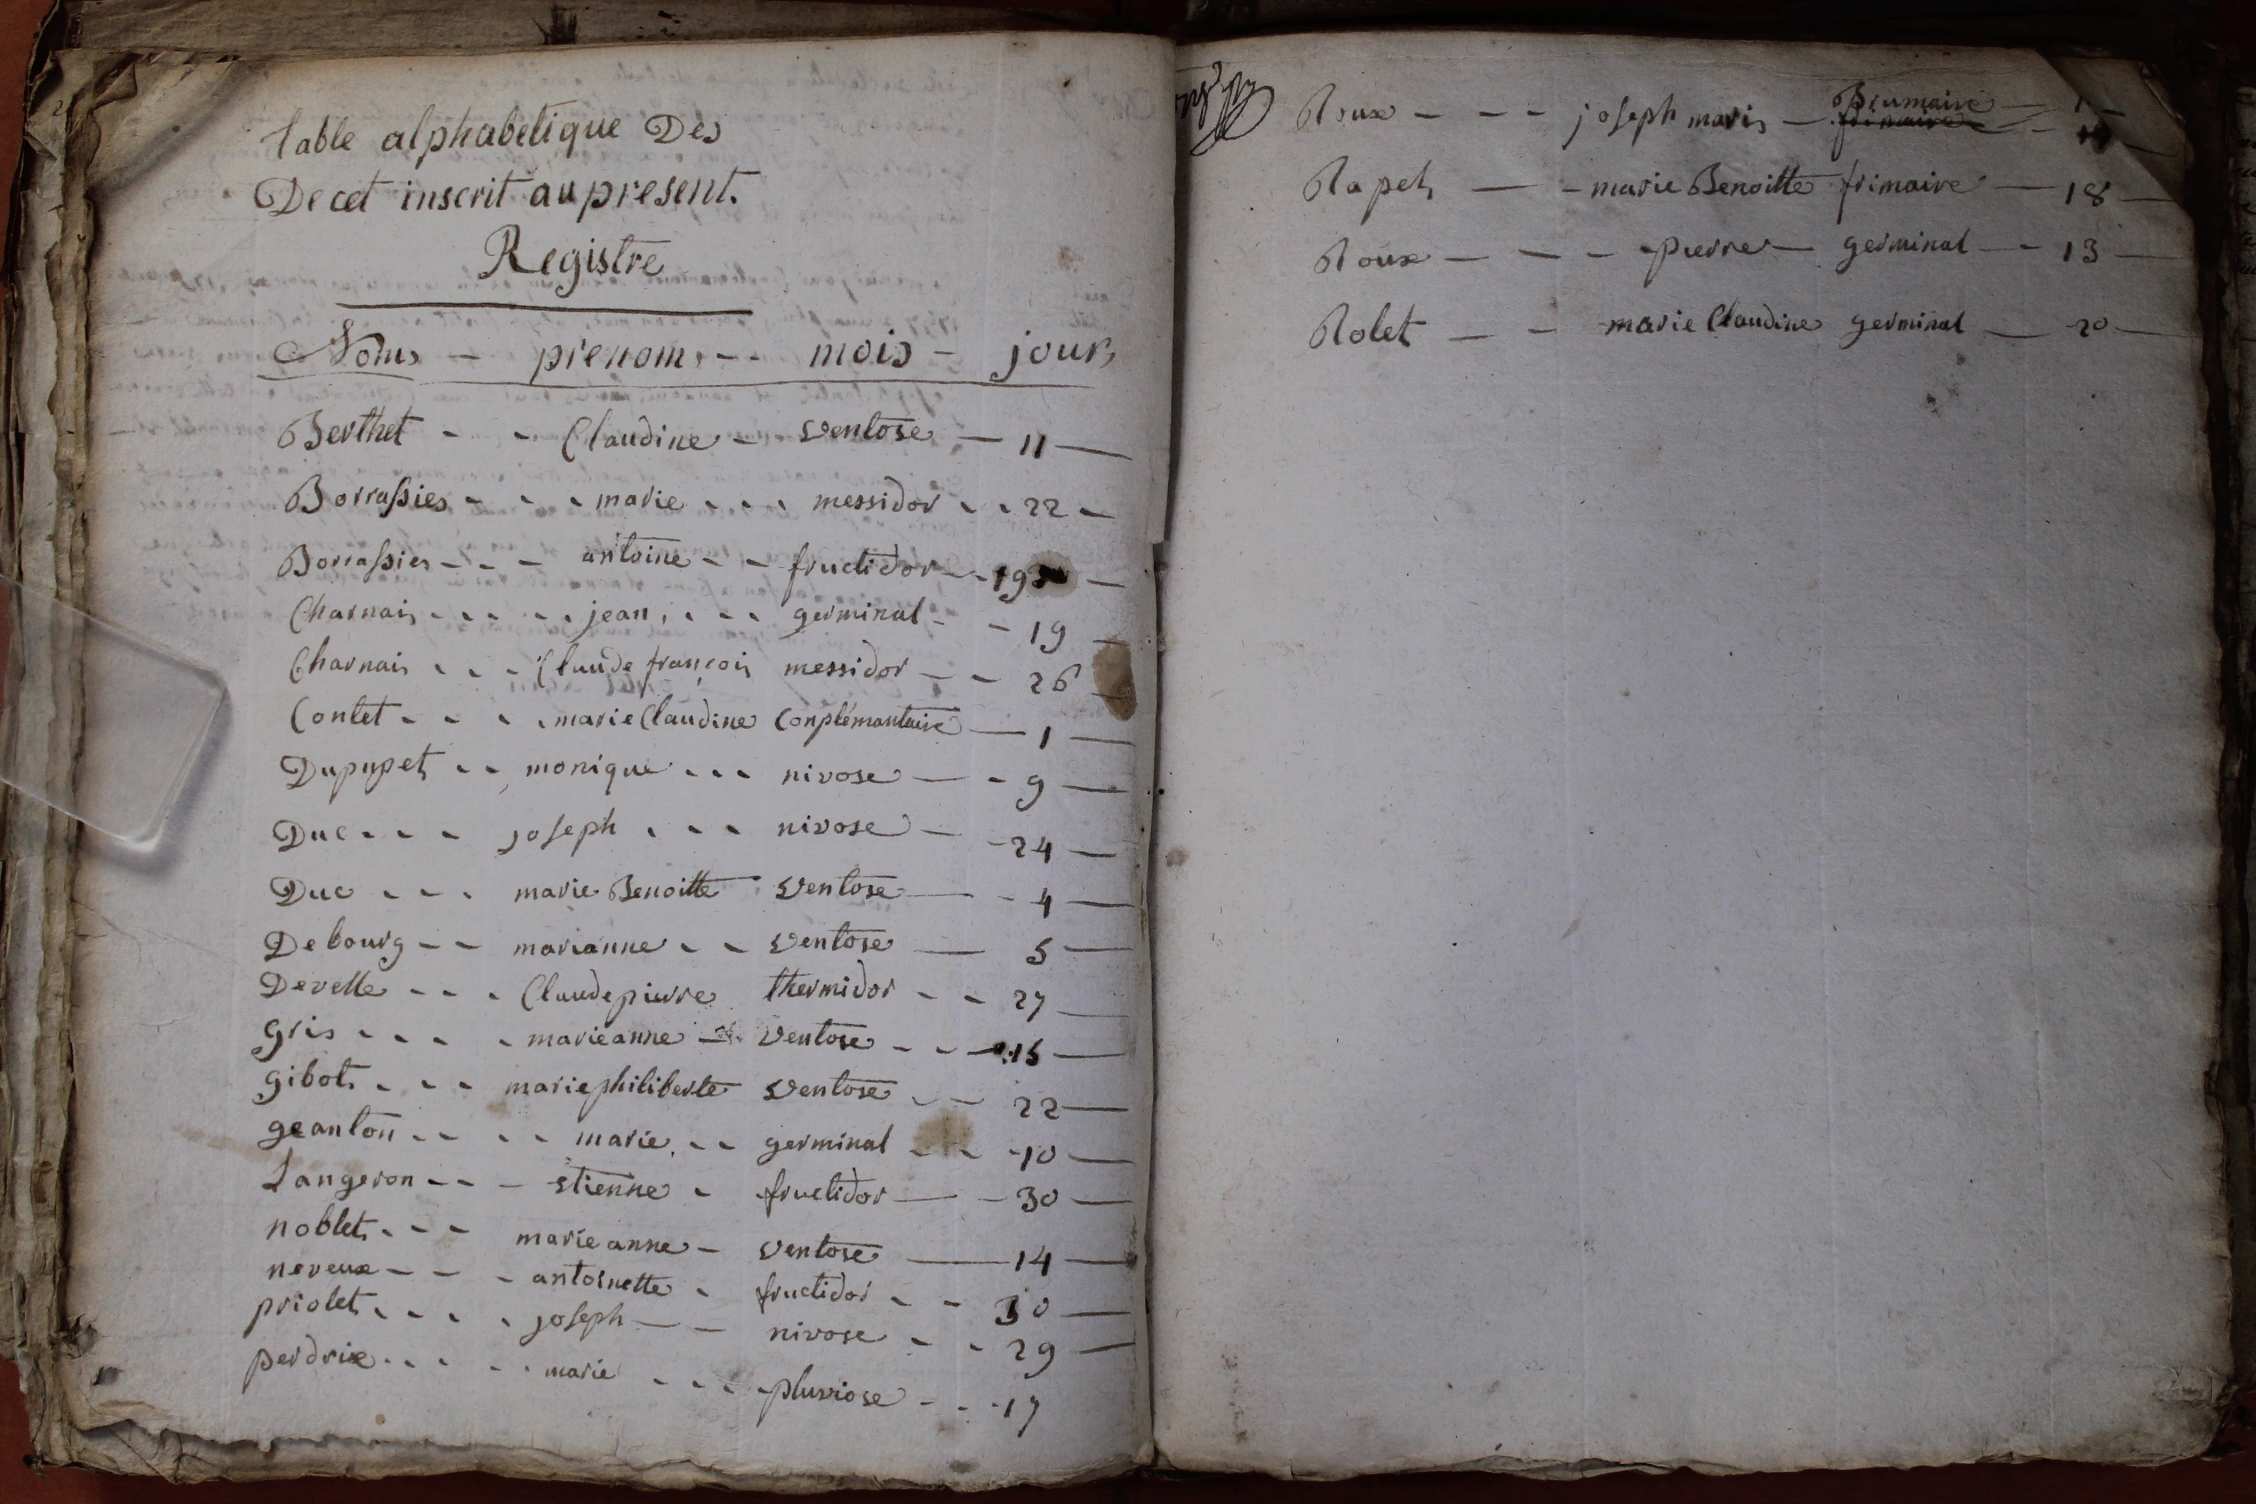 Table alphabetique Des
Decet inscrit au present.
Registre
Noms - prenoms - - mois - jours
Berthet - - Claudine - ventose - 11 -
Borrassier - - - marie - - - messidor - - 22 -
Borrassier - - - antoine - - fructidor - - 19 -
Charnais - - - - - jean - - - germinal - - 19 -
Charnais - - - Claude françois messidor - - 26 -
Contet - - - - marie Claudine Conplémantaire - 1 -
Dupupet - - monique - - - nivose - - 9 -
Duc - - - joseph - - - nivose - - 24 -
Duc - - - marie Benoitte ventose - - 4 -
Debourg - - marianne - - ventose - 5 -
Develle - - - Claude pierre thermidor - - 27 -
gris - - - - - marieanne - ventose - - - 15 -
gibot - - - marie philiberte ventose - - 22 -
geanton - - - - marie - - germinal - - - 10 -
Langeron - - - etienne - fructidor - - 30 -
noblet - - - marie anne - ventose - 14 -
neveux - - - antoinette - fructidor - - 30 -
priolet - - - - joseph - - nivose - - 29 -
perdrix - - - - - marie - - - - pluviose - - - 17
Roux - - - joseph marie - Brumaire -
Rapet - - marie Benoitte frimaire - 18 -
Roux - - - - pierre - germinal - - 13 -
Rolet - - marie Claudine germinal - 20 -